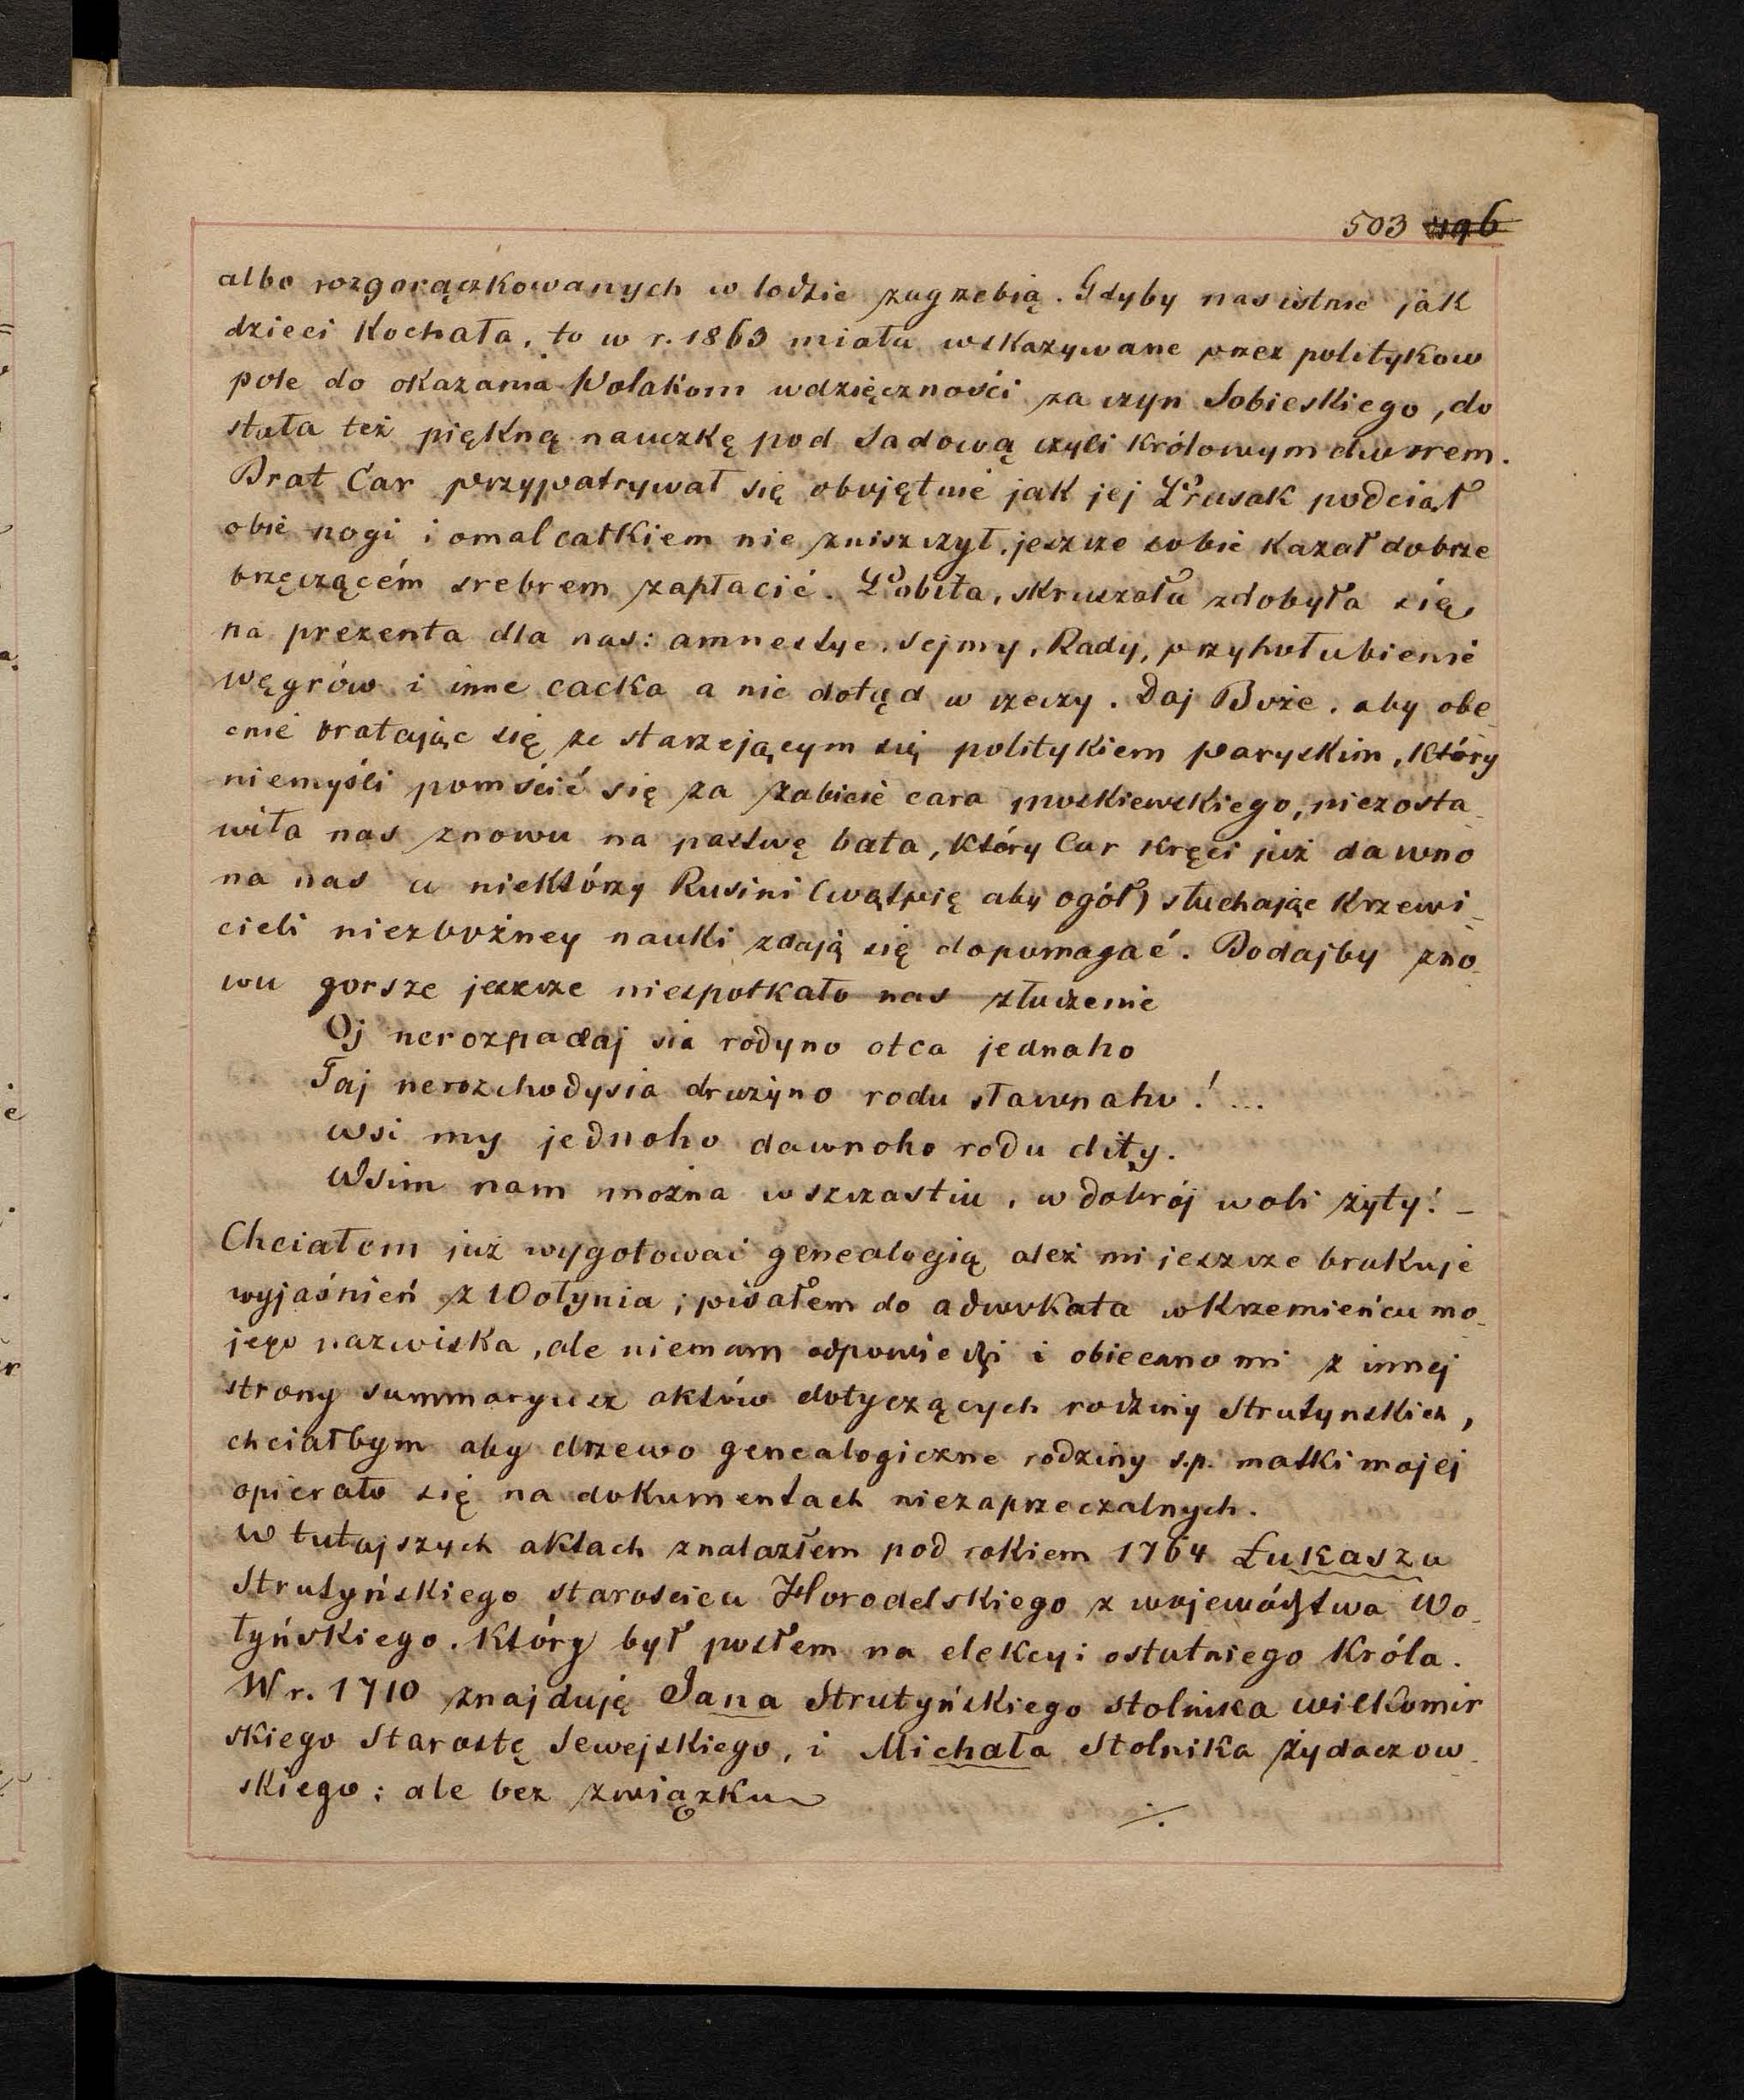 503 496
albo rozgorączkowanych w lodzie zagrzebią. Gdyby nas istnie jak
dzieci Kochała, to w r. 1863 miała wskazywane przez polityków
pole do okazania Polakom wdzięczności za czyn Sobieskiego, do
stała też piękną nauczkę pod Sadową czyli Królowym dworem.
Brat Car przypatrywał się obojętnie jak jej Prusak podciął
obie nogi i omal całkiem nie zniszczył, jeszcze sobie kazał dobrze
brzęczącém srebrem zapłacić. Pobita, skruszała zdobyła się
na prezenta dla nas: amnestye, Sejmy, Rady, przyhołubienie
węgrów i inne cacka a nic dotąd w rzeczy. Daj Boże, aby obe_
cnie bratając się ze starzejącym się politykiem paryskim, który
niemyśli pomścić się za zabicie cara moskiewskiego, niezosta_
wiła nas znowu na pastwę bata, który Car kręci już dawno
na nas a niektórzy Rusini (wątpię aby ogół) słuchając Krzewi_
cieli niezbożney nauki zdają się dopomagać. Bodajby zno_
wu gorsze jeszcze niespotkało nas złuczenie
Oj nerozpadaj sia rodyno otca jednaho
Taj nerozchodysia drużyno rodu sławnaho! ...
wsi my jednoho dawnoho rodu dity.
Wsim nam można w szczastiu, w dobrój woli żyty! _
Chciałem już wygotować genealogią ależ mi jeszcze brakuje
wyjaśnień z Wołynia; pisałem do adwokata w Krzemieńcu mo_
jego nazwiska, ale niemam odpowiedzi i obiecano mi z innej
strony summaryusz aktów dotyczących rodziny Strutynskich,
chciałbym aby drzewo genealogiczne rodziny s.p. matki mojej
opierało się na dokumentach niezaprzeczalnych.
W tutajszych aktach znalazłem pod rokiem 1764 Łukasza
Strutyńskiego staroscica Horodelskiego z województwa Wo_
łyńskiego. Który był posłem na elekcyi ostatniego Króla.
W r. 1710 znajduję Jana Strutyńskiego stolnika wiłkomir
skiego Starostę Sewejskiego, i Michała Stolnika żydaczow_
skiego; ale bez związku ./.